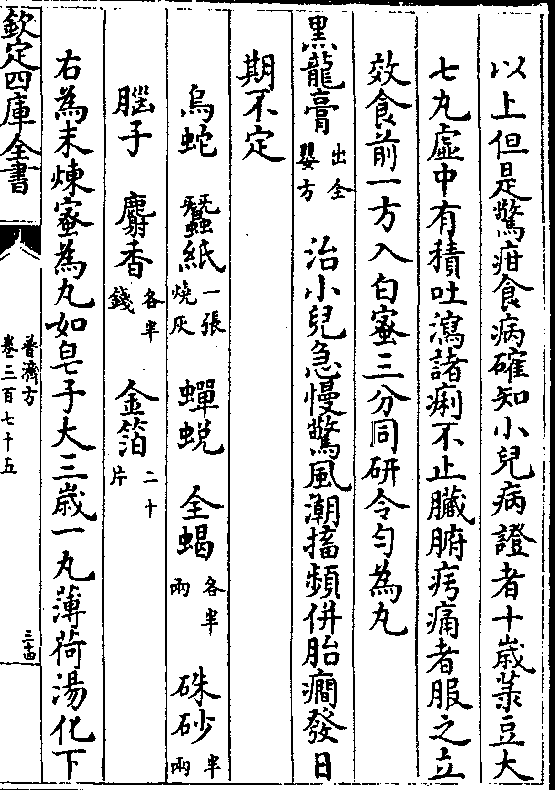 以上但是驚疳食病確知小兒病證者十歲菉豆大
七丸虛中有積吐瀉諸痢不止臟腑㽲痛者服之立
效食前一方入白蜜三分同研令勻為丸
黑龍膏出全嬰方 治小兒急慢驚風潮搐頻併胎癎發日
期不定
烏蛇 蠶紙一張燒灰 蟬蛻 全蝎各半兩 硃砂半兩
腦子 麝香各半錢 金箔二十片
右為末煉蜜為丸如皂子大三歲一丸薄荷湯化下
欽定四庫全書
普濟方
卷三百七十五